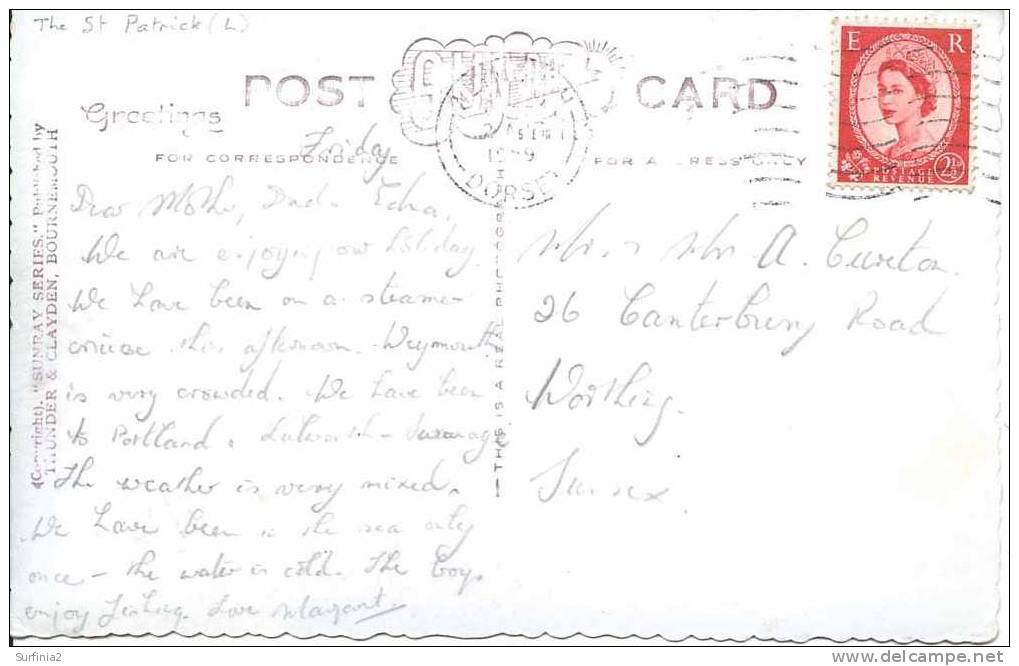 The St Patrick (L)
POST CARD
E R
POSTAGE
REVENUE
2½D
Greetings
DORSET
FOR CORRESPONDENCE
FOR ADDRESS ONLY
(Copyright). "SUNRAY SERIES." Published by
THUNDER & CLAYDEN, BOURNEMOUTH
THIS IS A REAL PHOTOGRAPH
Friday
Dear Mother, Dad & Edna,
We are enjoying our holiday.
We have been on a steamer
cruise this afternoon. Weymouth
is very crowded. We have been
to Portland, Lulworth - Swanage
The weather is very mixed.
We have been in the sea only
once - the water is cold. The boys
enjoy fishing. Love Margaret
Mr. & Mrs A. Cureton.
26 Canterbury Road
Worthing.
Sussex
Surfinia2
delcampe.net